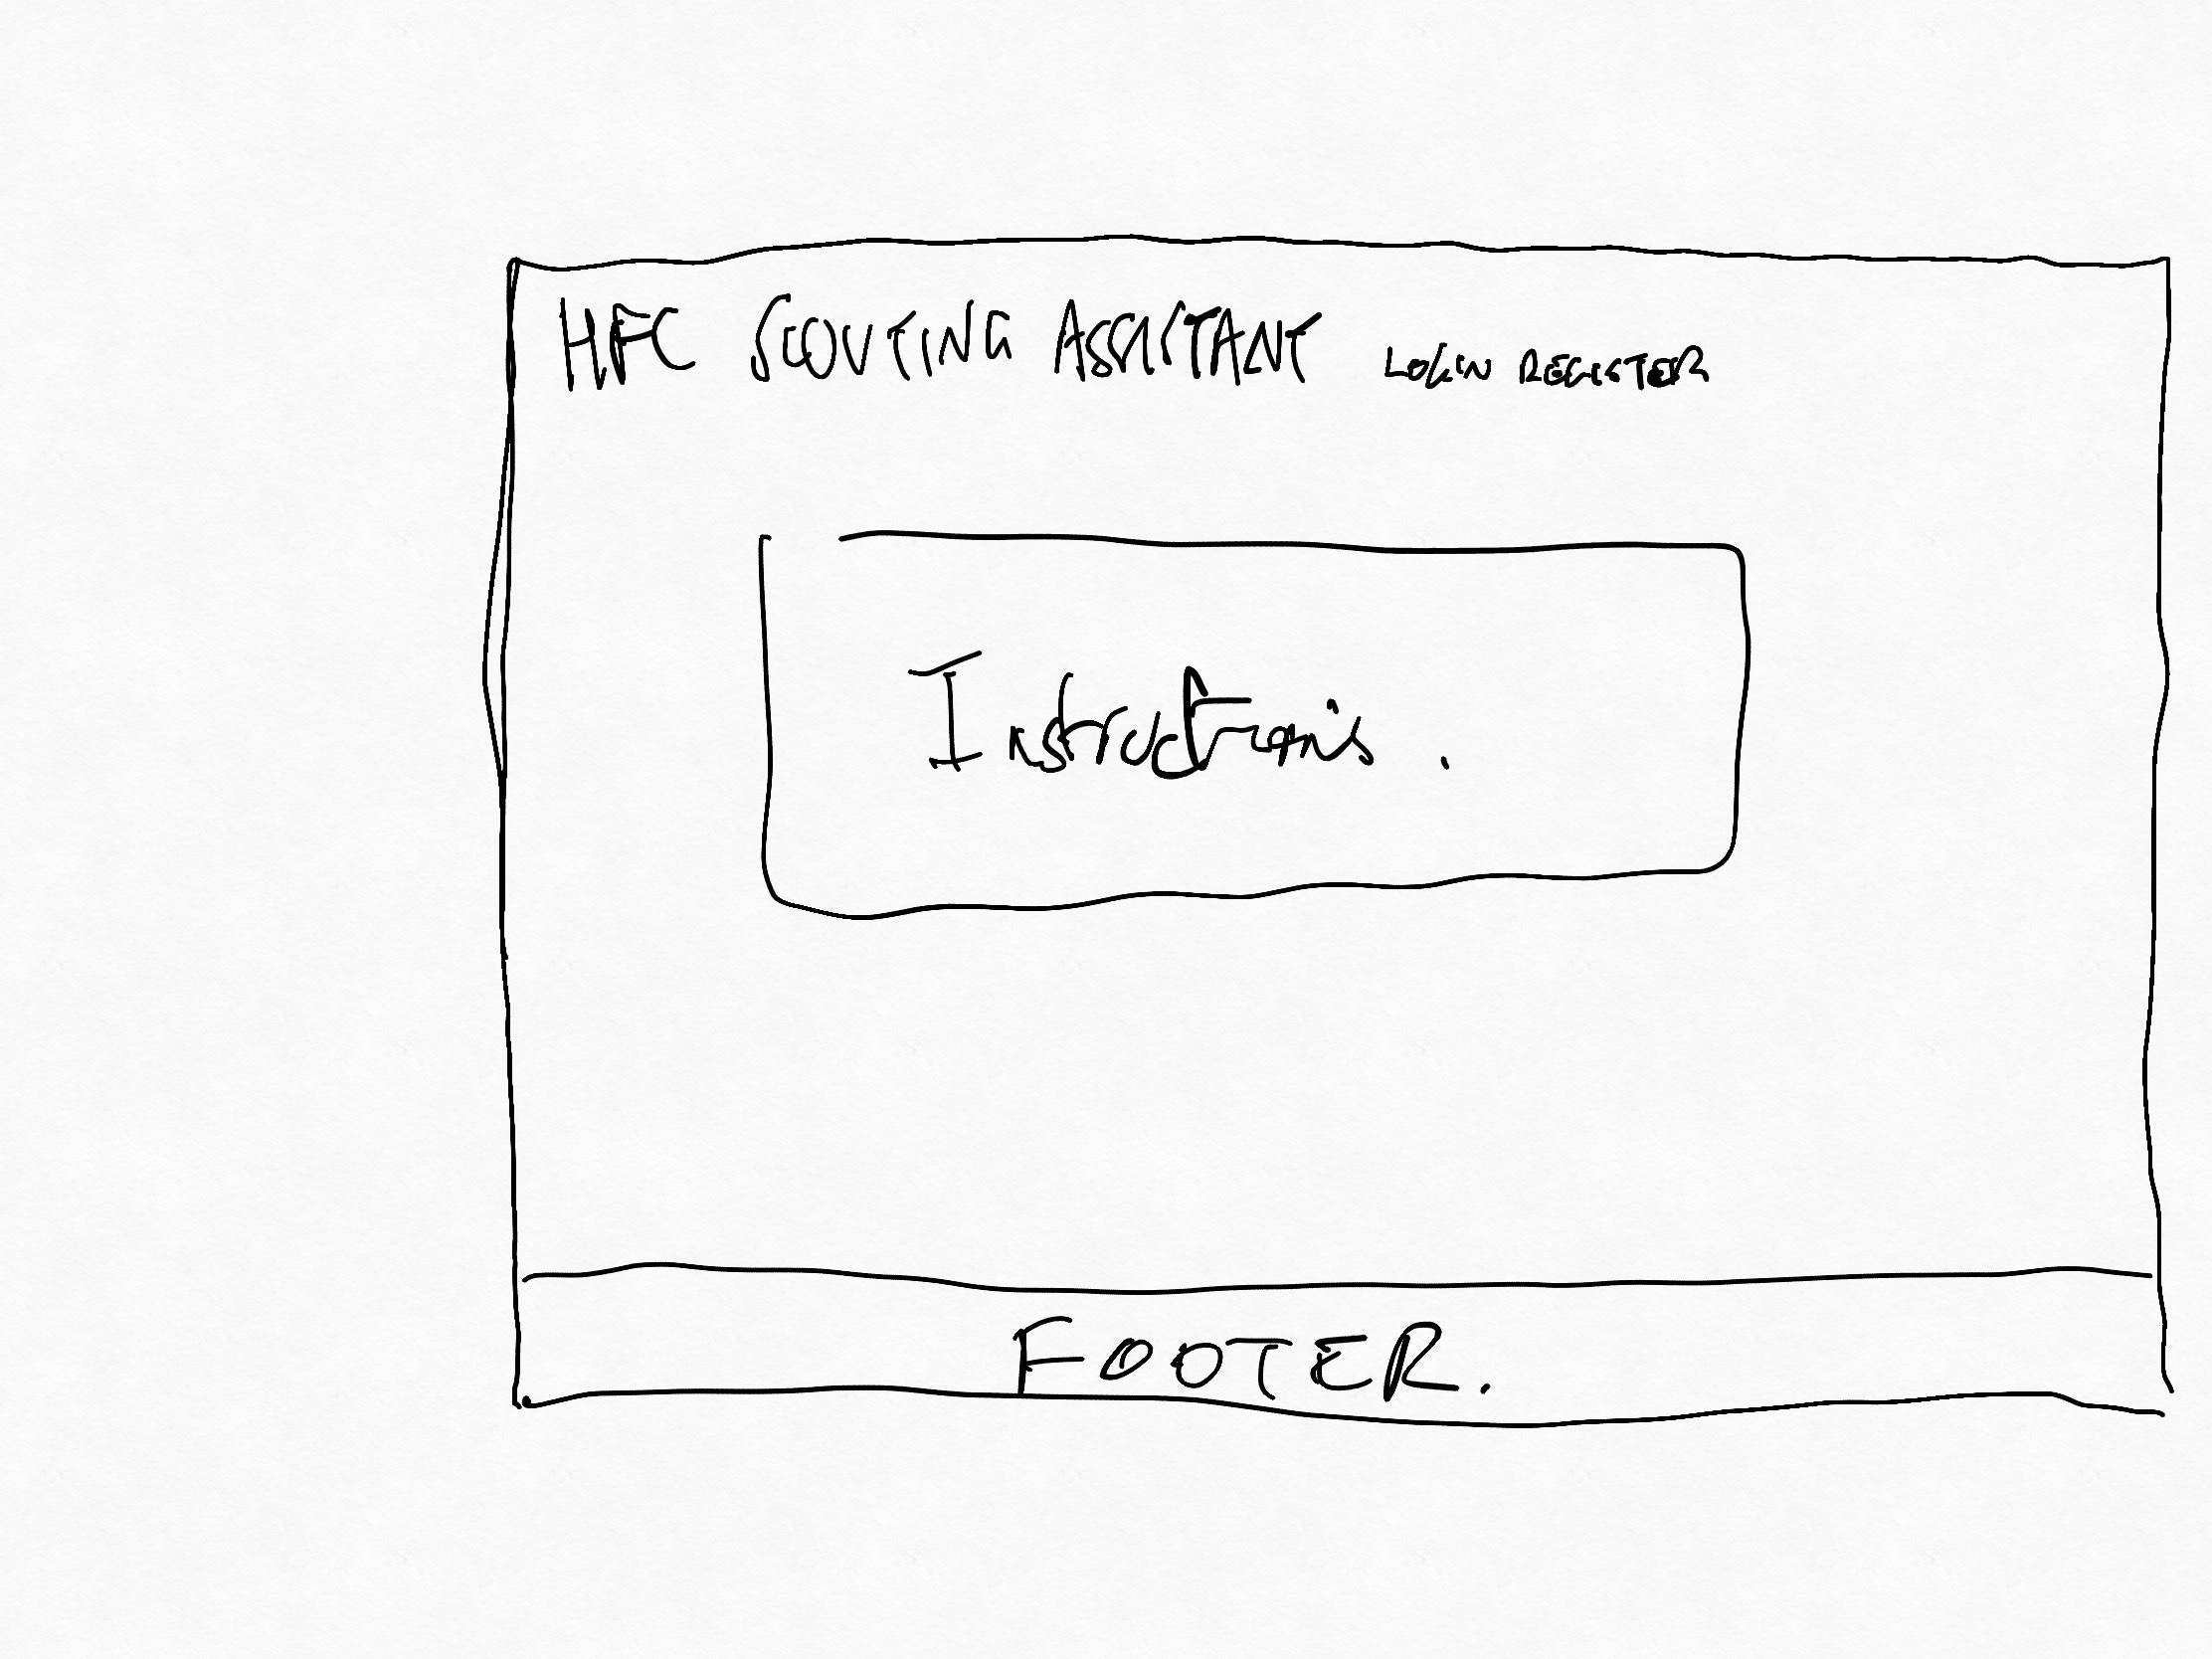 HFC SCOUTING ASSISTANT LOGIN REGISTER
Instructions.
FOOTER.